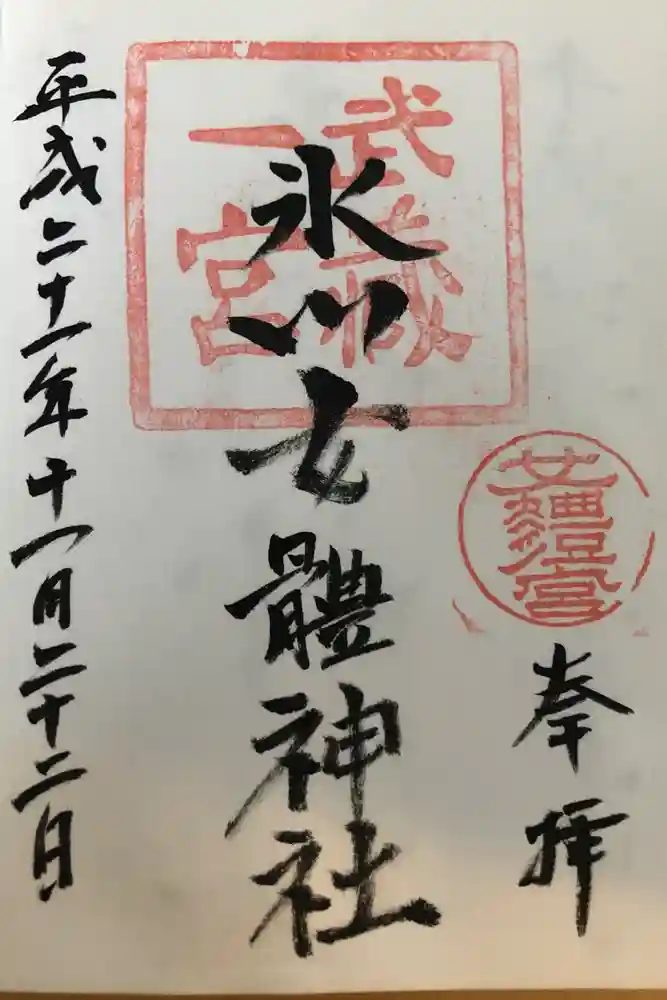 奉拝
女體宮
武蔵
一宮
氷川女體神社
平成二十一年十一月二十二日